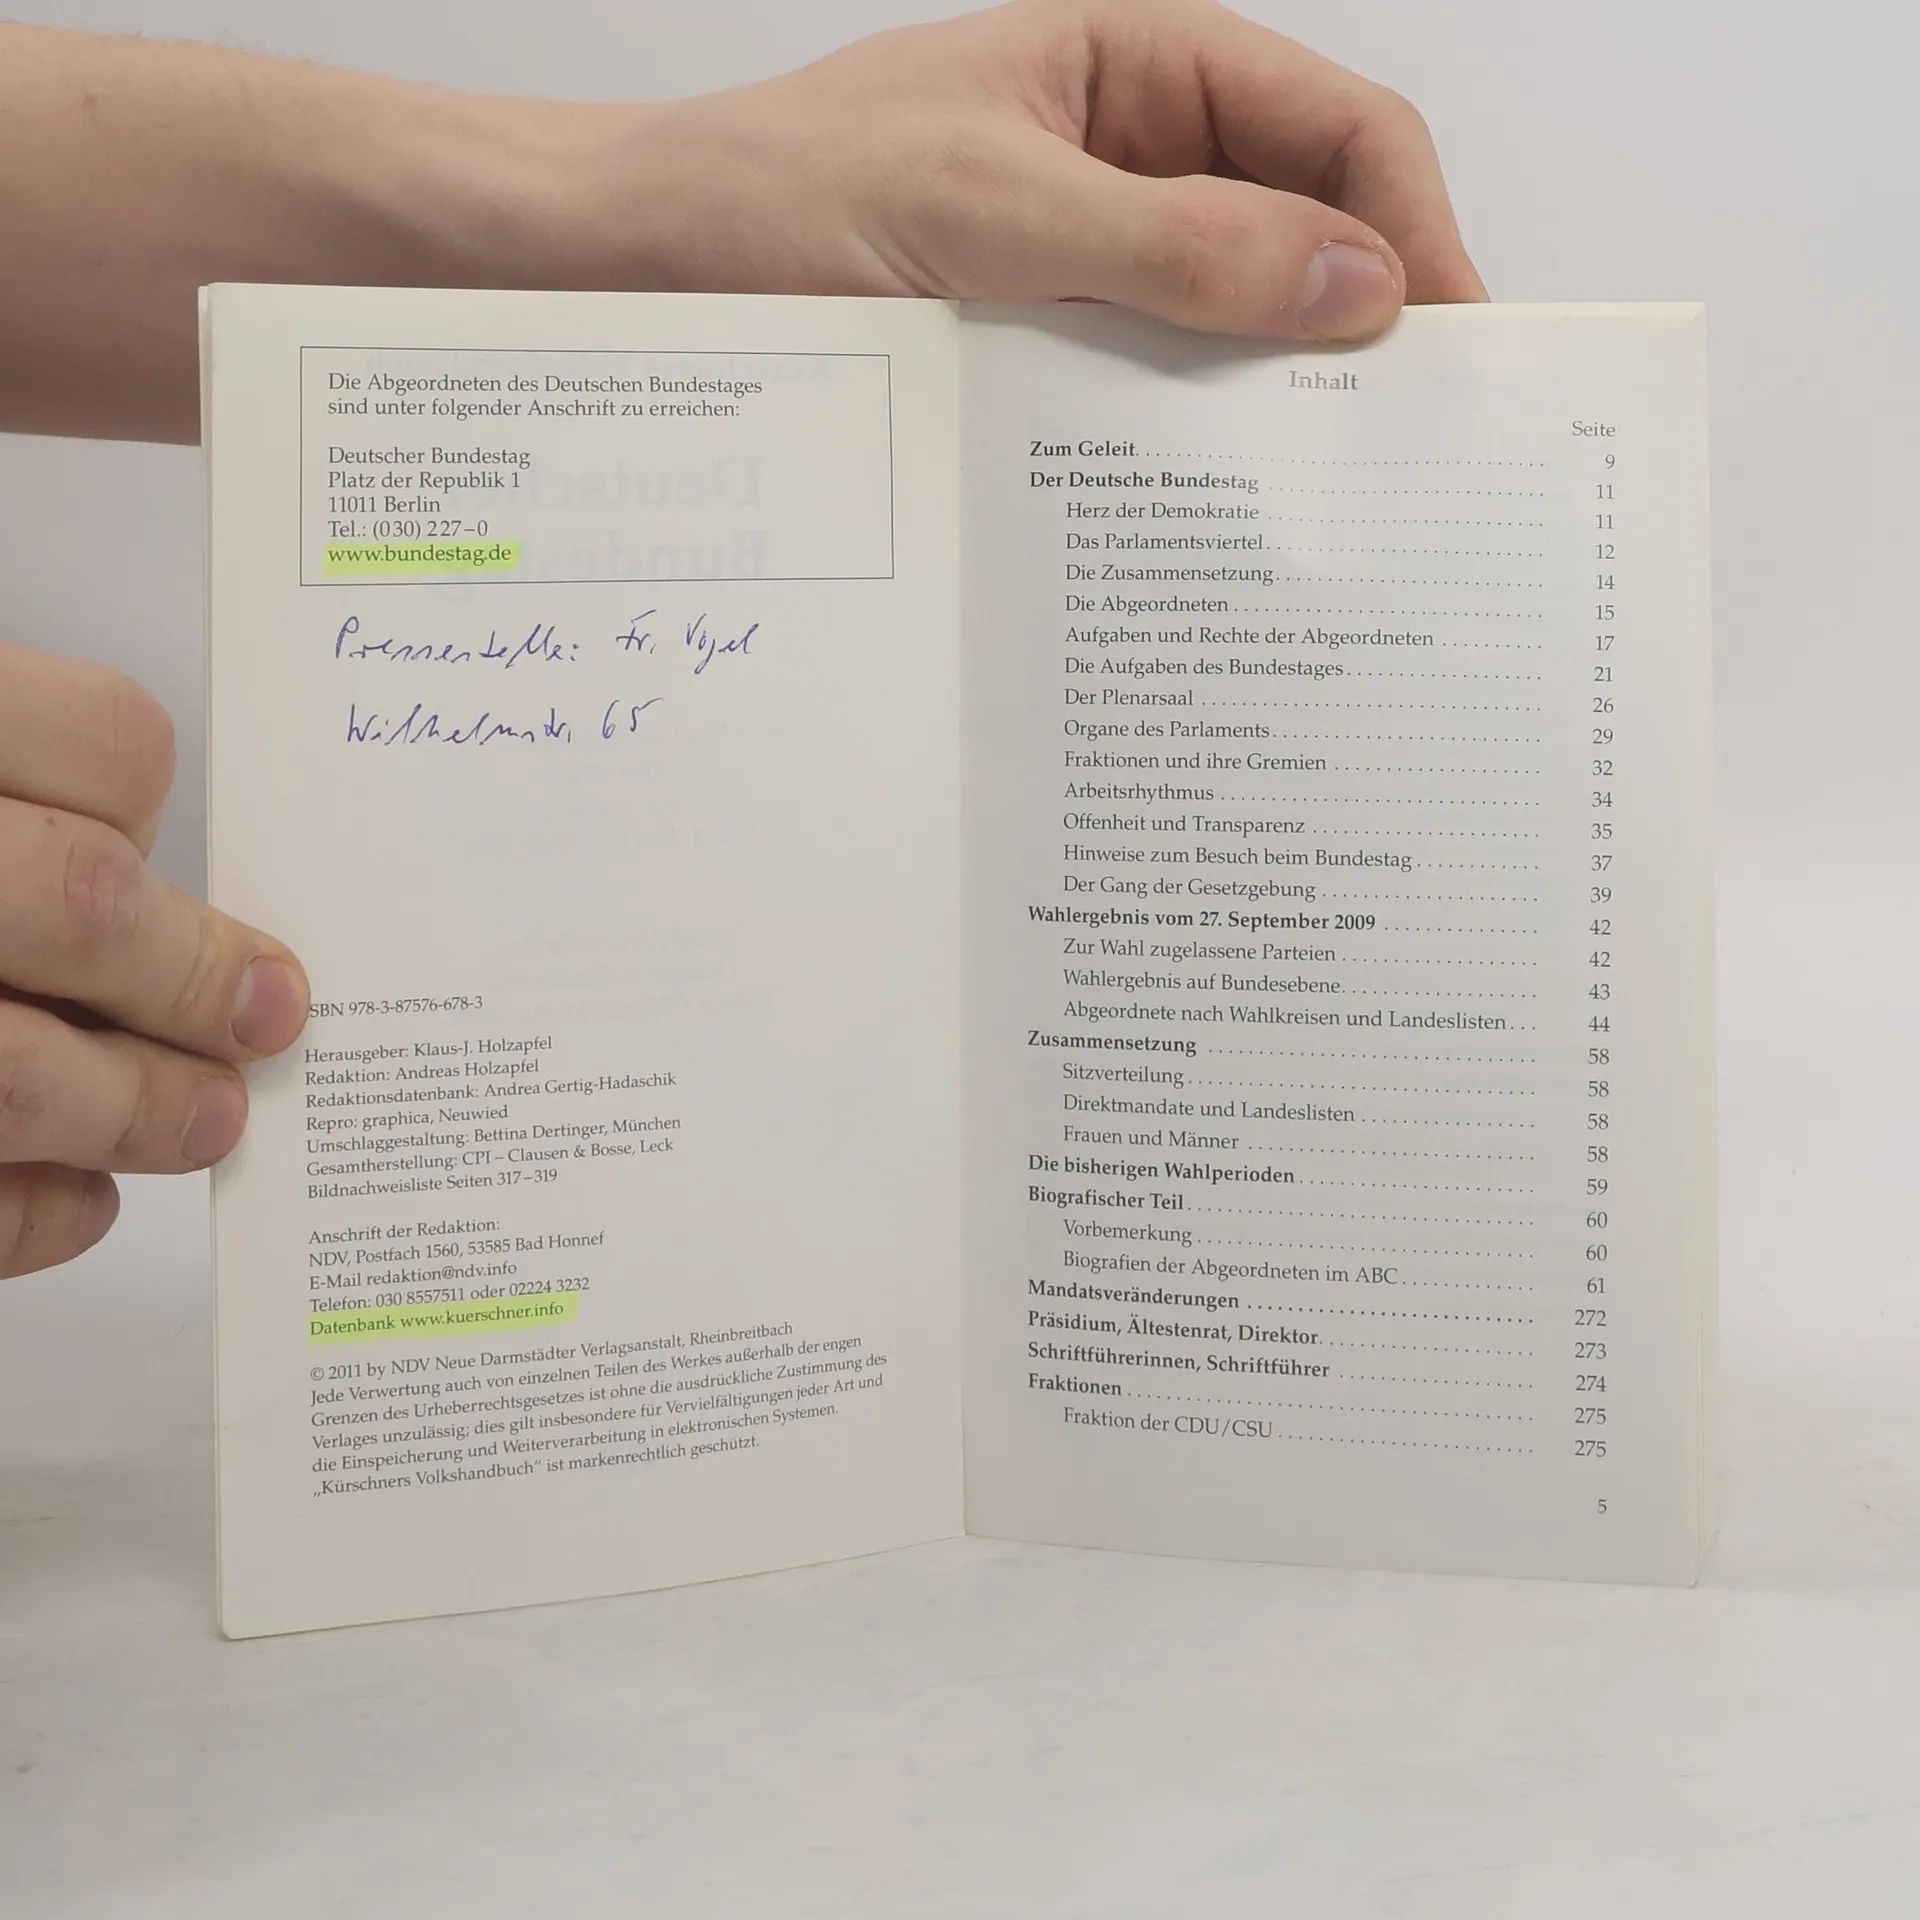 Die Abgeordneten des Deutschen Bundestages
sind unter folgender Anschrift zu erreichen:
Deutscher Bundestag
Platz der Republik 1
11011 Berlin
Tel.: (030) 227–0
www.bundestag.de
Pressestelle: Fr. Vogel
Wilhelmstr. 65
SBN 978-3-87576-678-3
Herausgeber: Klaus-J. Holzapfel
Redaktion: Andreas Holzapfel
Redaktionsdatenbank: Andrea Gertig-Hadaschik
Repro: graphica, Neuwied
Umschlaggestaltung: Bettina Dertinger, München
Gesamtherstellung: CPI – Clausen & Bosse, Leck
Bildnachweisliste Seiten 317–319
Anschrift der Redaktion:
NDV, Postfach 1560, 53585 Bad Honnef
E-Mail redaktion@ndv.info
Telefon: 030 8557511 oder 02224 3232
Datenbank www.kuerschner.info
© 2011 by NDV Neue Darmstädter Verlagsanstalt, Rheinbreitbach
Jede Verwertung auch von einzelnen Teilen des Werkes außerhalb der engen
Grenzen des Urheberrechtsgesetzes ist ohne die ausdrückliche Zustimmung des
Verlages unzulässig; dies gilt insbesondere für Vervielfältigungen jeder Art und
die Einspeicherung und Weiterverarbeitung in elektronischen Systemen.
„Kürschners Volkshandbuch“ ist markenrechtlich geschützt.
Inhalt
Seite
Zum Geleit. . . . . . . . . . 9
Der Deutsche Bundestag . . . . . . . . . . 11
Herz der Demokratie . . . . . . . . . . 11
Das Parlamentsviertel. . . . . . . . . . 12
Die Zusammensetzung. . . . . . . . . . 14
Die Abgeordneten . . . . . . . . . . 15
Aufgaben und Rechte der Abgeordneten . . . . . . . . . . 17
Die Aufgaben des Bundestages. . . . . . . . . . 21
Der Plenarsaal . . . . . . . . . . 26
Organe des Parlaments. . . . . . . . . . 29
Fraktionen und ihre Gremien . . . . . . . . . . 32
Arbeitsrhythmus . . . . . . . . . . 34
Offenheit und Transparenz . . . . . . . . . . 35
Hinweise zum Besuch beim Bundestag . . . . . . . . . . 37
Der Gang der Gesetzgebung . . . . . . . . . . 39
Wahlergebnis vom 27. September 2009 . . . . . . . . . . 42
Zur Wahl zugelassene Parteien . . . . . . . . . . 42
Wahlergebnis auf Bundesebene. . . . . . . . . . 43
Abgeordnete nach Wahlkreisen und Landeslisten . . . 44
Zusammensetzung . . . . . . . . . . 58
Sitzverteilung . . . . . . . . . . 58
Direktmandate und Landeslisten . . . . . . . . . . 58
Frauen und Männer . . . . . . . . . . 58
Die bisherigen Wahlperioden . . . . . . . . . . 59
Biografischer Teil . . . . . . . . . . 60
Vorbemerkung . . . . . . . . . . 60
Biografien der Abgeordneten im ABC . . . . . . . . . . 61
Mandatsveränderungen . . . . . . . . . . 272
Präsidium, Ältestenrat, Direktor. . . . . . . . . . 273
Schriftführerinnen, Schriftführer . . . . . . . . . . 274
Fraktionen . . . . . . . . . . 275
Fraktion der CDU/CSU . . . . . . . . . . 275
5